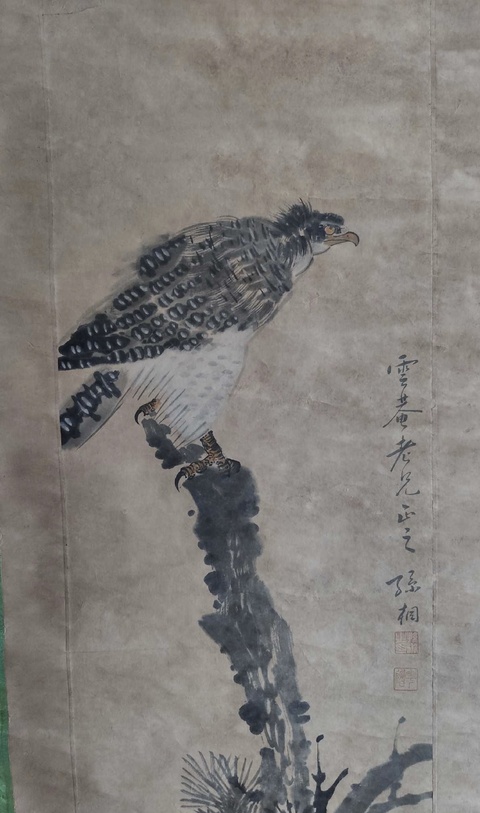 雲菴老兄正之
孫桐